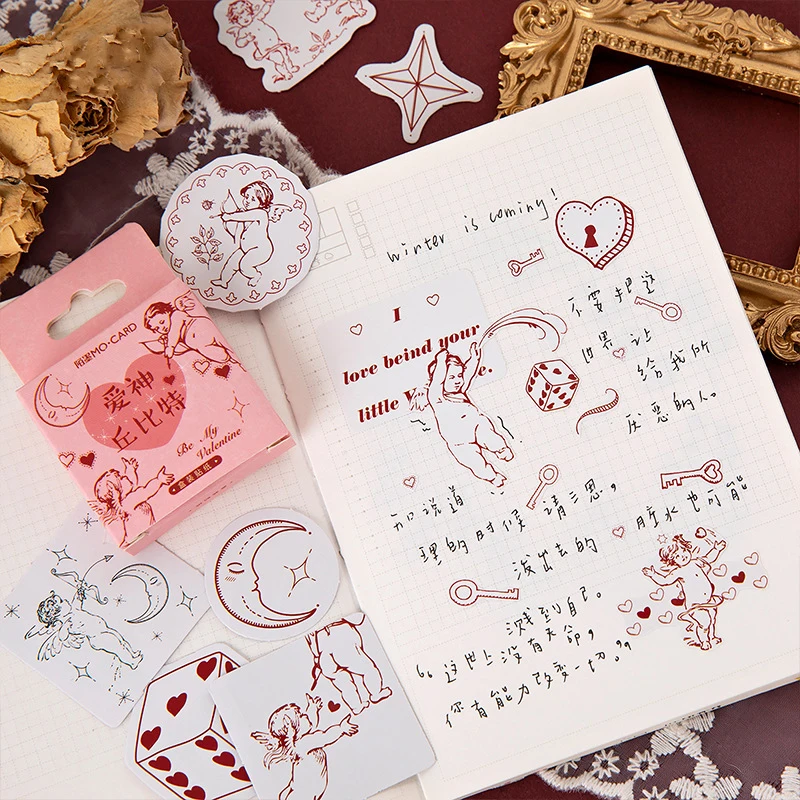 MO·CARD
爱神
丘比特
Be My
Valentine
盒装贴纸
Winter is coming!
不要把这
世界让
给我所
厌恶的人。
I
love beind your
little
说道
理的时候 请三思。
泼出去的 脏水也可能
溅到自己。
“这世上没有天命，
你有能力改变一切。”